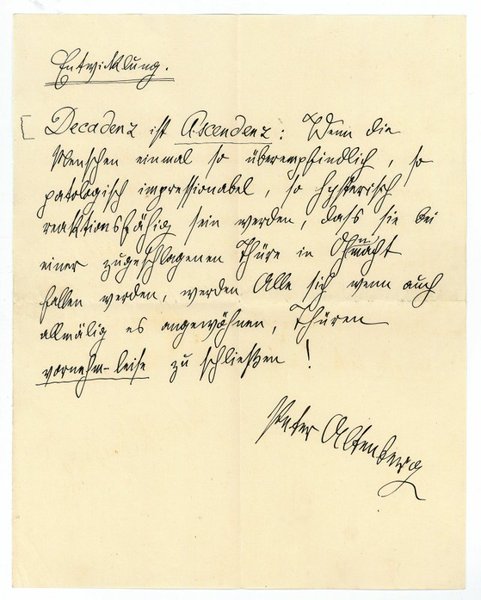 Entwicklung.
[ Decadenz ist Ascendenz: Wenn die
Menschen einmal so überempfindlich, so
patologisch impressionabel, so hysterisch
reaktionsfähig sein werden, dass sie bei
einer zugeschlagenen Thüre in Ohnmacht
fallen werden, werden Alle sich wenn auch
allmälig es angewöhnen, Thüren
vornehm-leise zu schließen!
Peter Altenberg